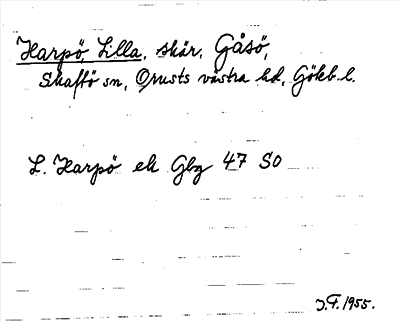 Harpö, Lilla, skär, Gåsö,
Skaftö sn, Orusts västra hd, Göteb. l.
L. Harpö ek Gbg 47 SO
J.F. 1955.